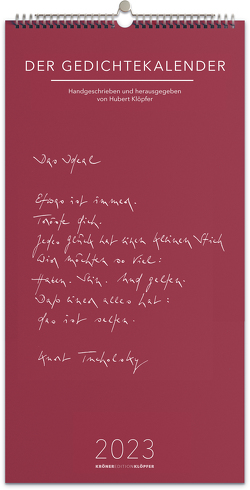 DER GEDICHTEKALENDER
Handgeschrieben und herausgegeben
von Hubert Klöpfer
Das Ideal
Etwas ist immer.
Tröste dich.
Jedes Glück hat einen kleinen Stich
Wir möchten so viel:
Haben. Sein. Und gelten.
Daß einer alles hat:
das ist selten.
Kurt Tucholsky
2023
KRÖNEREDITIONKLÖPFER